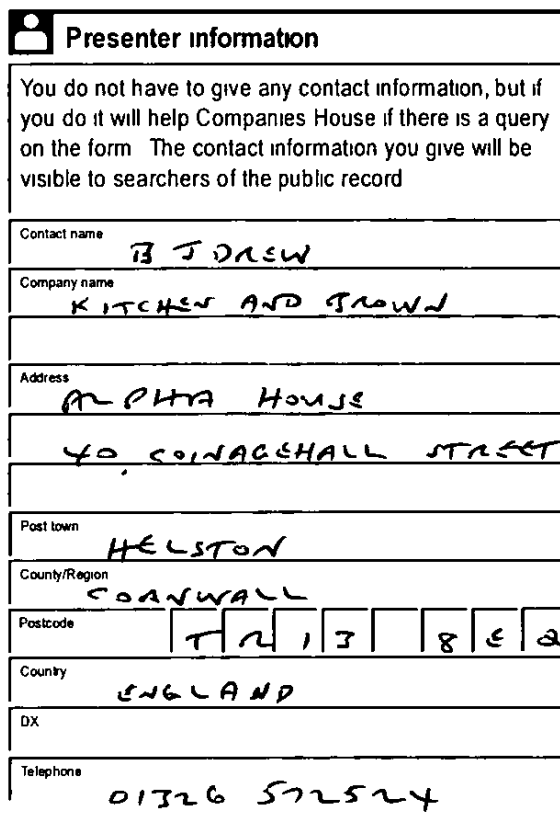 Presenter information
You do not have to give any contact information, but if
you do it will help Companies House if there is a query
on the form The contact information you give will be
visible to searchers of the public record
Contact name
B J DREW
Company name
KITCHEN AND BROWN
Address
ALPHA HOUSE
40 COINAGEHALL STREET
Post town
HELSTON
County/Region
CORNWALL
Postcode
TR13 8EQ
Country
ENGLAND
DX
Telephone
01326 572524